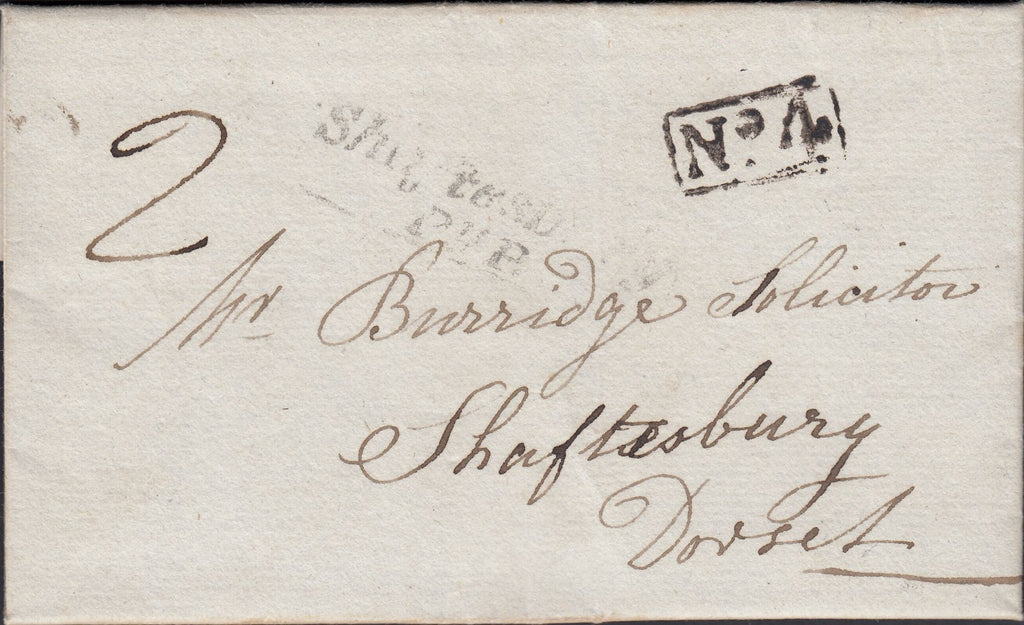 2
No 4
Shaftesbury
Py P
Mr Burridge Solicitor
Shaftesbury
Dorset